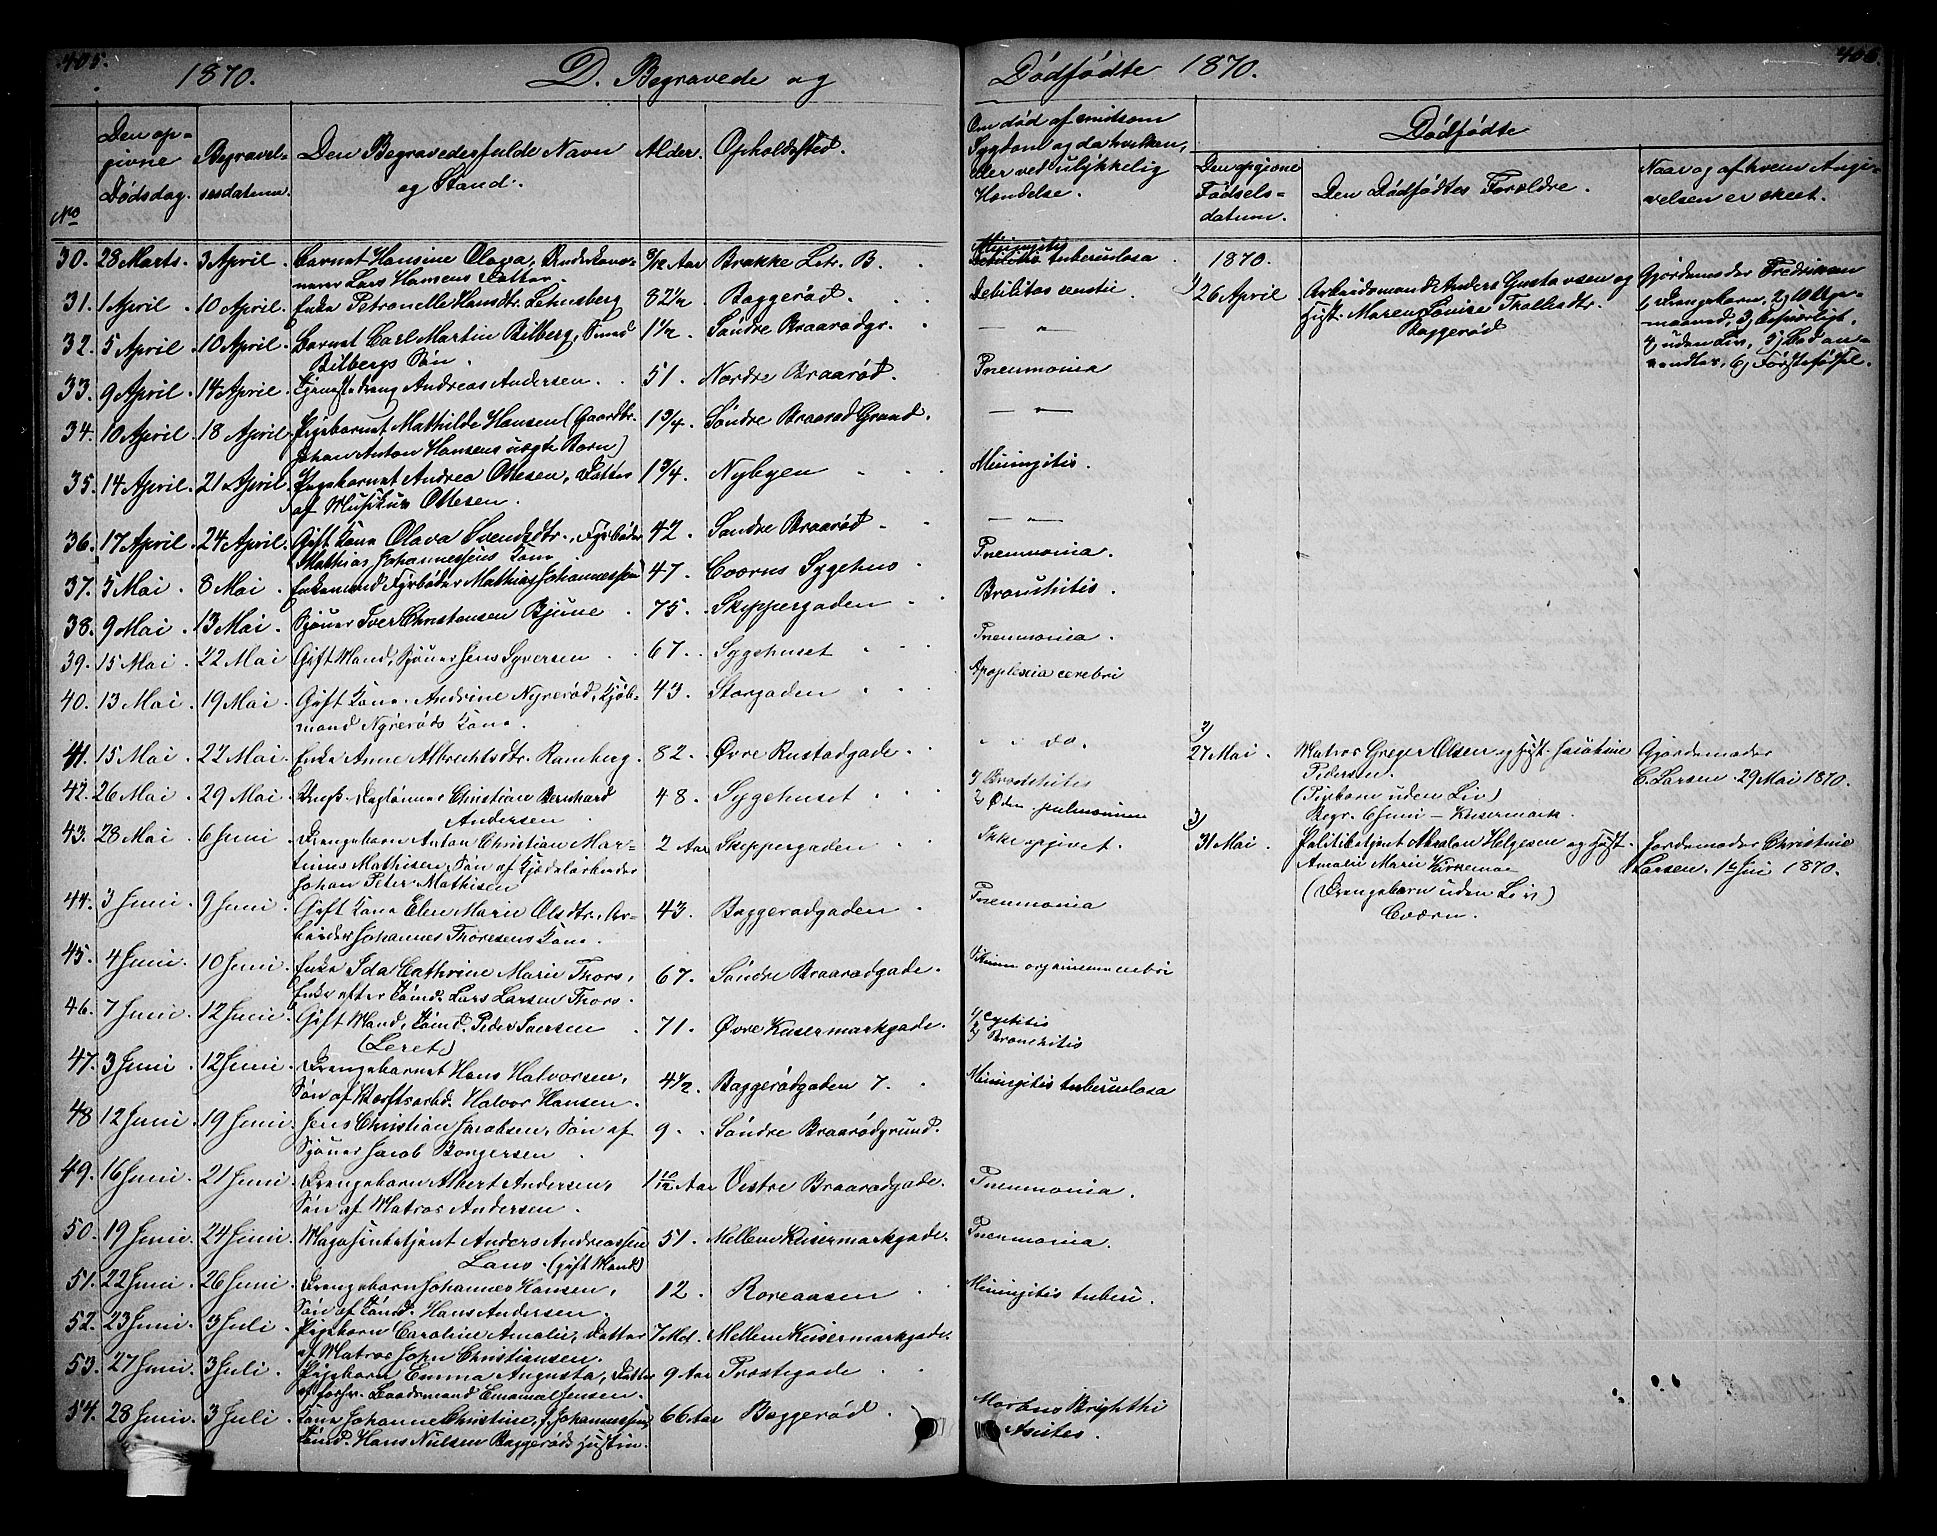 405.
1870.
D. Begravede og
Dødfødte 1870.
406.
No
Den op-
givne
Dødsdag.
Begravel-
sesdatum.
Den Begravedes fulde Navn
og Stand.
Alder.
Opholdssted.
Om død af smitsom
Sygdom og da hvilken,
eller ved ulykkelig
Hændelse.
Dødfødte
Den opgivne
Fødsels-
datum.
Den Dødfødtes Forældre.
Naar og af hvem Angi-
velsen er skeet.
30. 28 Marts. 3 April. Barnet Hansine Olava,
Lars Hansens Datter 9/12 Aar Brakke Litr. B. Miningitis tuberculosa
31. 1 April 10 April. Enke Petronelle Hansdtr. 82 1/2 Baggerød. Debilitas
32. 5 April. 10 April. Barnet Carl Martin Bilberg,
Bilbergs Søn. 1 1/2 Søndre Braarødgr. — „ —
33. 9 April 14 April. Tjenestedreng Andreas Andersen. 51. Nordre Braarød. Pneumonia
34. 10 April 18 April. Pigebarnet Mathilde Hansen (Gaardbr.
Johan Anton Hansens uægte Barn) 1 3/4. Søndre Braarød Grund. — „ —
35. 14 April. 21 April. Pigebarnet Andrea Ottesen, Datter
af Musikus Ottesen. 1 3/4. Nybyen Miningitis.
36. 17 April 24 April. Gift Kone Olava Svendsdtr., Fyrbøder
Mathias Johannessens Kone 42. Søndre Braarød — „ —
37. 5 Mai 8 Mai. Enkemand Fyrbøder Mathias Johannessen 47. Coværns Sygehus Pneumonia.
38. 9 Mai. 13 Mai. Sjøuer Iver Christensen Bjune 75. Skippergaden Bronchitis.
39. 15 Mai 22 Mai Gift Mand, Sjøuer Jens Syversen 67. Sygehuset Pneumonia.
40. 13 Mai 19 Mai. Gift Kone Andrine Nyrerød, Kjøb-
mand Nyrerøds Kone. 43. Storgaden Apoplexia cerebri
41. 15 Mai. 22 Mai. Enke Anne Albrechtsdtr. Ramberg. 82. Øvre Rustadgade. do.
42. 26 Mai 29 Mai. Ungk. Daglønner Christian Bernhard
Andersen 48. Sygehuset 1/ Bronchitis
2/ Ødem. pulmonum
43. 28 Mai 6 Juni Drengebarn Anton Christian Mar-
tinus Mathisen, Søn af Kjedelarbeider
Johan Peter Mathisen 2 Aar Skippergaden Ikke opgivet.
44. 3 Juni 9 Juni Gift Kone Elen Marie Olsdtr. Ar-
beider Johannes Thoresens Kone. 43. Baggerødgaden Pneumonia
45. 4 Juni. 10 Juni. Enke Ida Cathrine Marie Thors,
Enke efter Tømd. Lars Larsen Thors. 67. Søndre Braarødgade. Vitium organicum cerebri
46. 7 Juni 12 Juni. Gift Mand, Tømd. Peder Iversen
(Leret) 71. Øvre Keisermarkgade. 1/ Cystitis
2/ Bronchitis
47. 3 Juni 12 Juni. Drengebarnet Hans Halvorsen,
Søn af Værftsarbd. Halvor Hansen. 4 1/2. Baggerødgaden 7. Miningitis tuberculosa
48 12 Juni. 19 Juni. Jens Christian Jacobsen, Søn af
Sjøuer Jacob Borgersen 9. Søndre Braarødgrund.
49. 16 Juni 21 Juni Drengebarn Albert Andersen,
Søn af Matros Andersen. 1 10/12 Aar Vestre Braarødgade. Pneumonia.
50. 19 Juni 24 Juni. Magasinbetjent Anders Andreassen
Lans. (gift Mand) 51. Mellem Keisermarkgade. Pneumonia.
51. 22 Juni 26 Juni. Drengebarn Johannes Hansen,
Søn af Tømd. Hans Andersen. 12. Roreaasen Miningitis tuberc.
52. 23 Juni 3 Juli. Pigebarn Caroline Amalie, Datter
af Matros John Christiansen. 7 Md. Mellem Keisermarkgade.
53. 27 Juni 3 Juli. Pigebarn Emma Augusta, Datter
af forhv. Baadsmand Emanuel Jensen. 9 Aar Prestegade
54. 28 Juni. 3 Juli. Kone Johanne Christine, f. Johannessen,
Tømd. Hans Nielsen Baggerøds Hustru. 66 Aar Baggerød. Morbus Brighthi
Ascites.
1870.
1/ 26 April Arbeidsmand Anders Gustavsen og
Hust. Maren Lovise Trollesdtr.
Baggerød
Gjordemoder Fredriksen
1, Drengebarn, 2, 10
3,
4, uden Liv, 5,
6, Førstefødsel.
2/
27 Mai. Matros Greger Olsen og Hust. Jacobine
Pedersen.
(Pigebarn uden Liv)
Begr. 6 Juni – Keisermark
Gjordemoder
C. Larsen. 29 Mai 1870.
3/
31 Mai. Politibetjent Absalon Helgesen og Hust.
Amalie Marie Kirkemoe
(Drengebarn uden Liv)
Coværn.
Jordemoder Christine
Larsen. 1te Juni 1870.